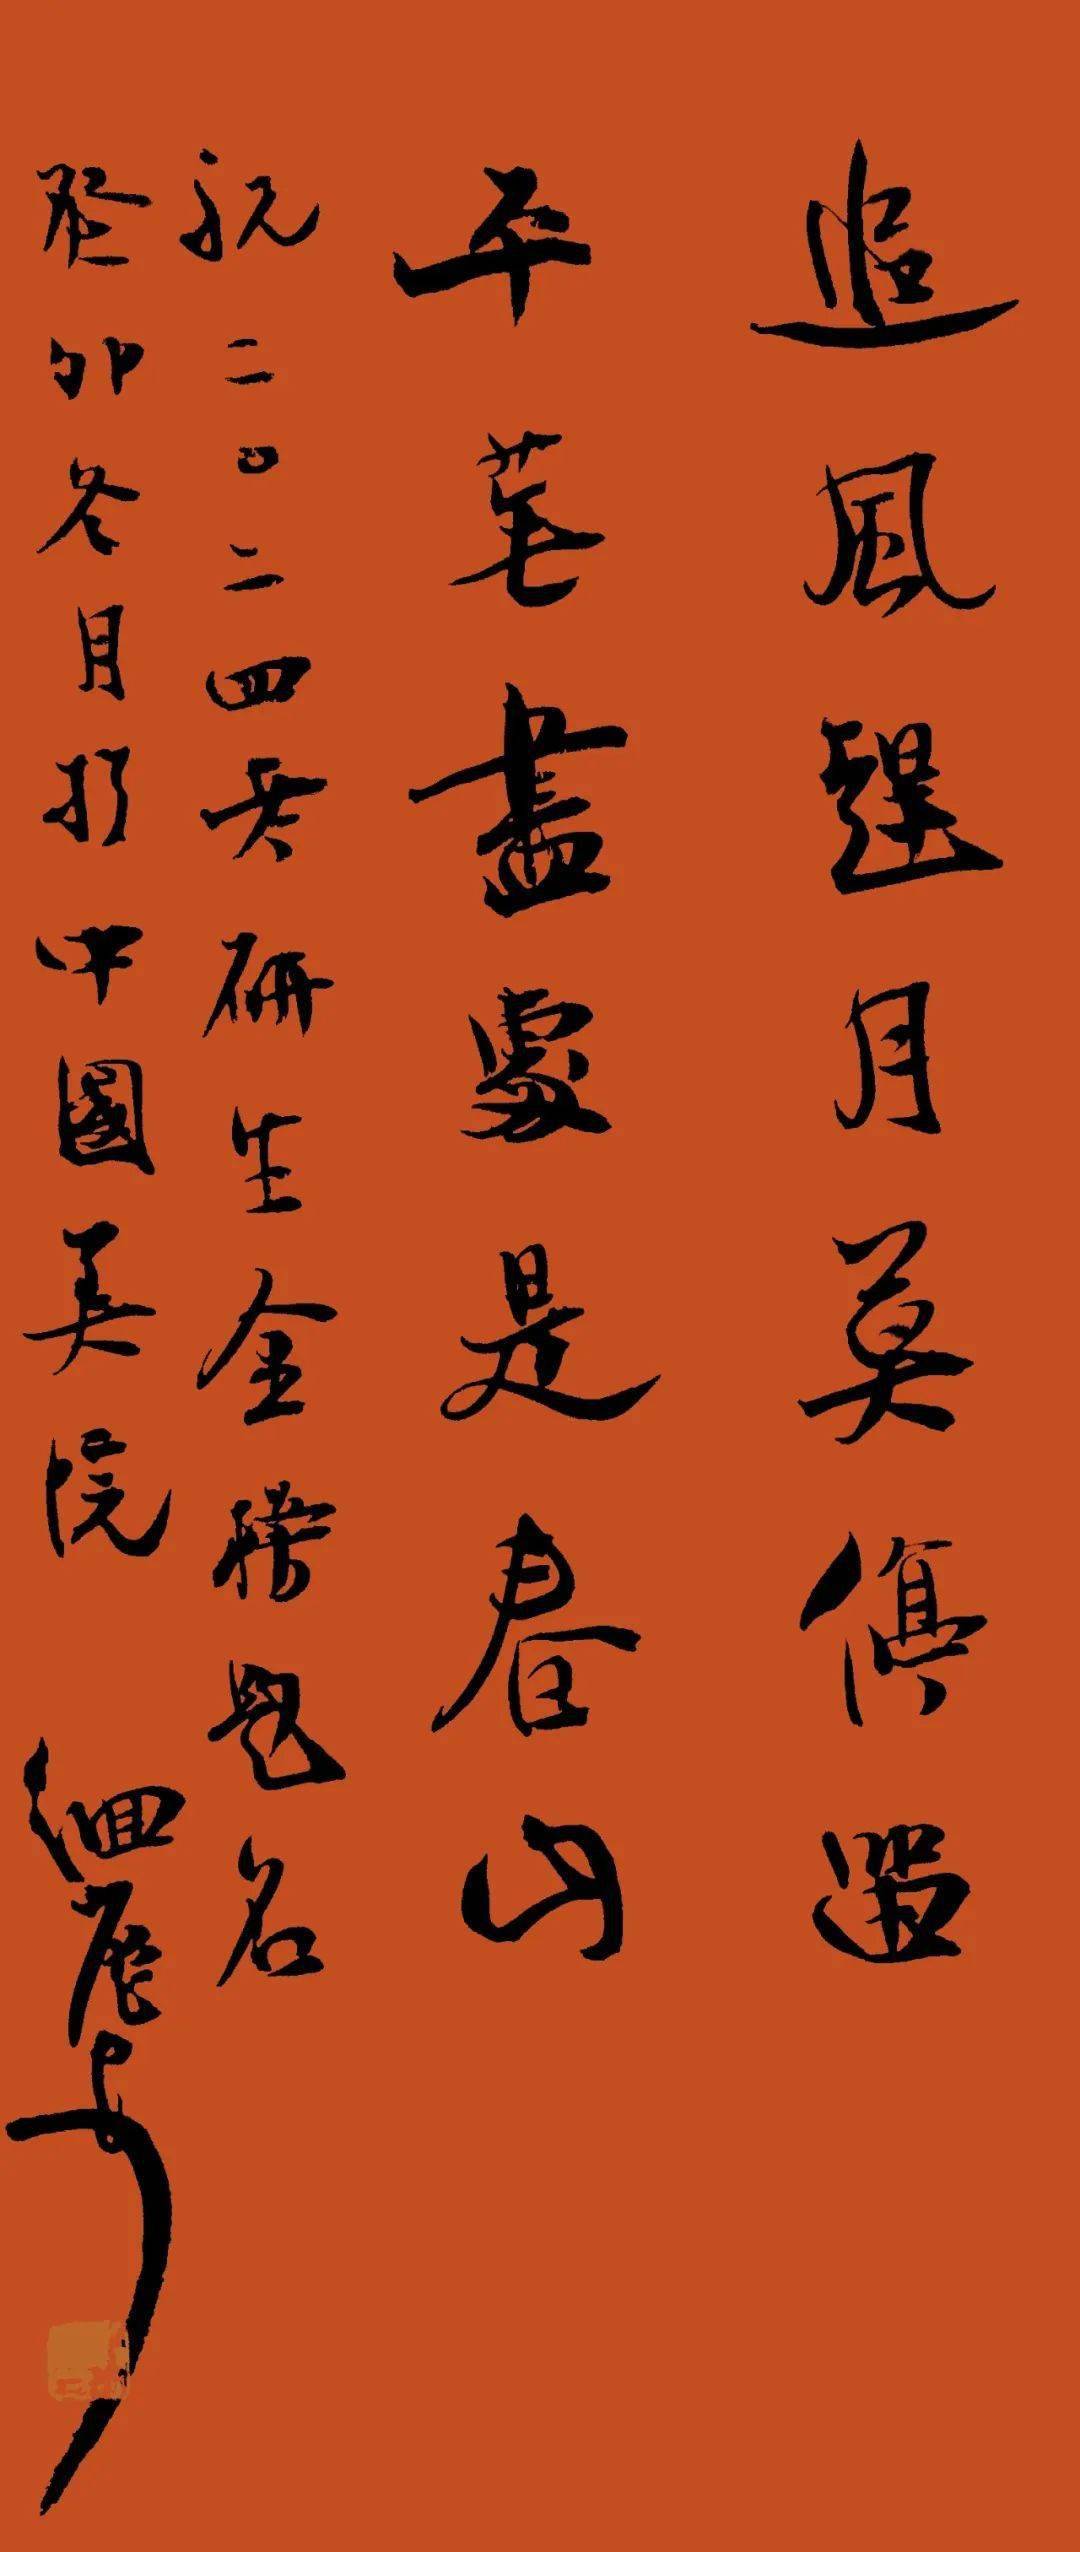 追風趕月莫停留
平芜盡處是春山
祝二〇二四考研生金榜題名
癸卯冬月於中國美院